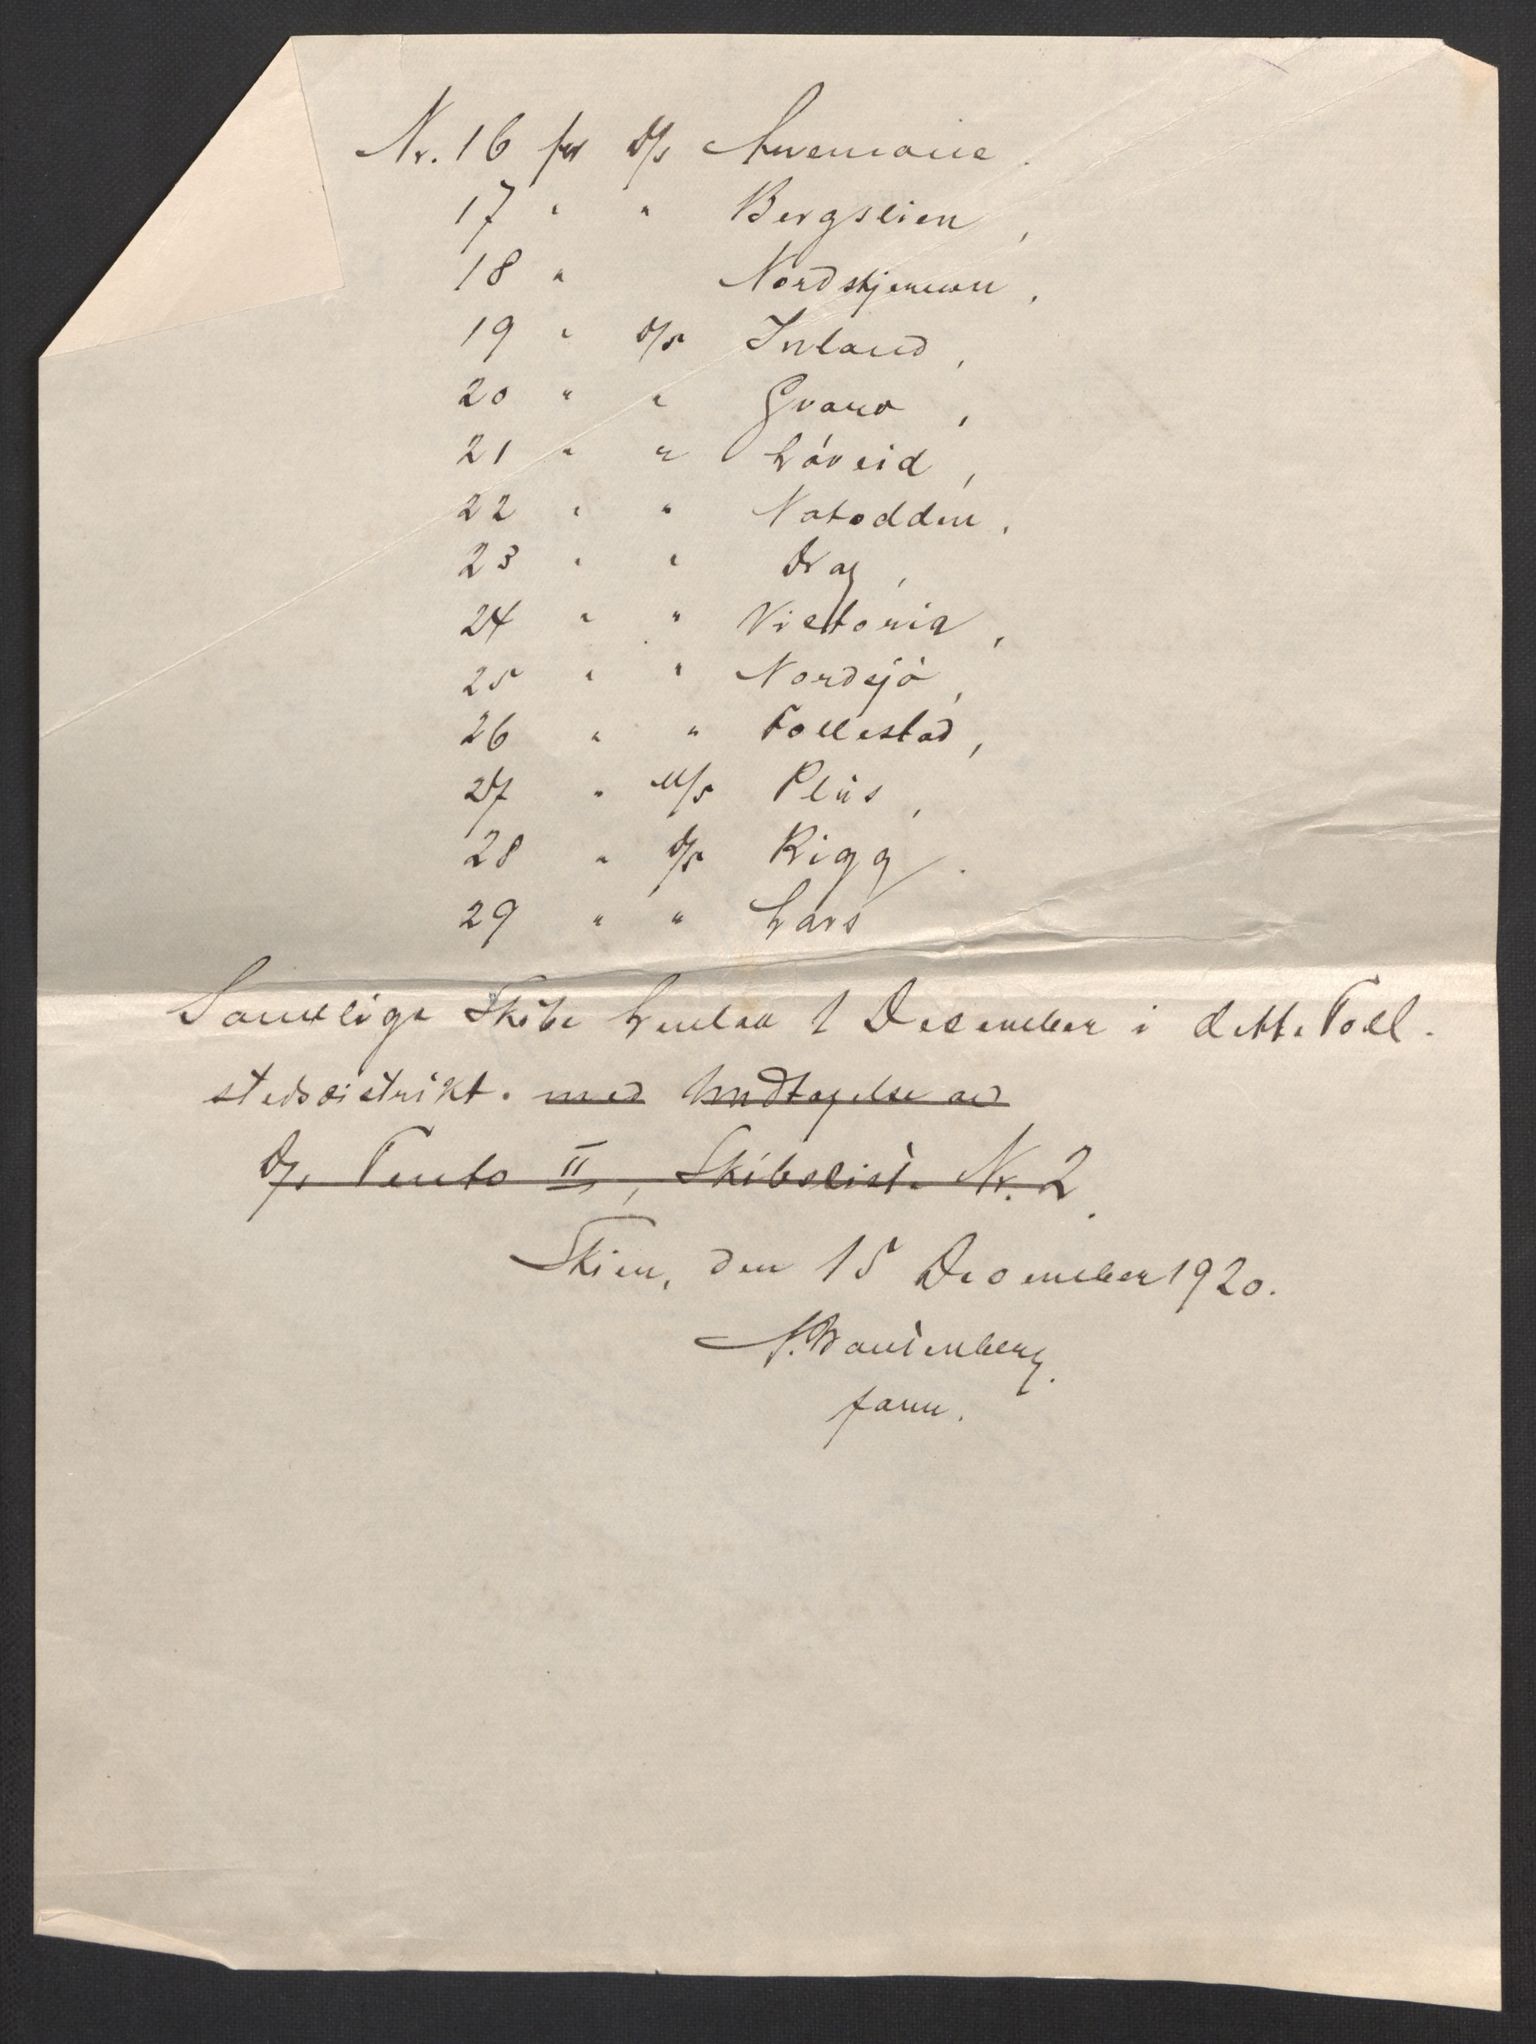 Nr. 16 for D/s Annemarie.
17 " " Bergslien,
18 " Nordstjernen,
19 " D/s Inland,
20 " " Gvarv,
21 " " Løveid,
22 " " Notodden,
23 " " Drag,
24 " " Victoria,
25 " " Nordsjø,
26 " " Follestad,
27 " M/s Pluis,
28 " D/s Rigg.
29 " " Lars
Samtlige Skibe 1 December i dette Told-
stedsdistrikt. med Undtagelse av
D/s II, Skibsliste Nr. 2.
Skien, den 15 December 1920.